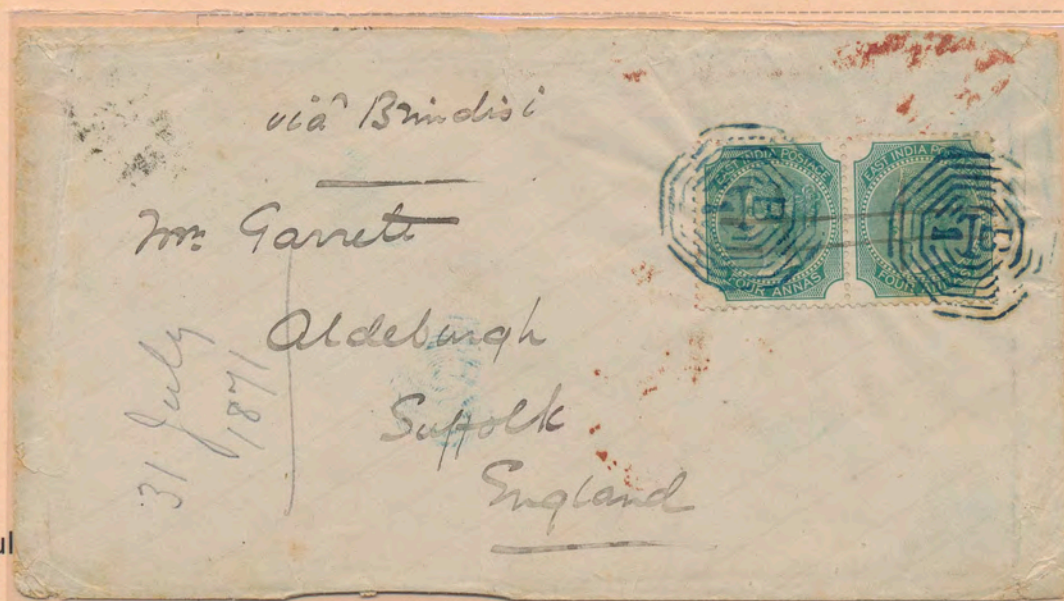 viâ Brindisi
Mrs Garrett
Aldeburgh
Suffolk
England
31 July
1871
EAST INDIA POSTAGE
FOUR ANNAS
EAST INDIA PO
FOUR
B
1
B
1
ul